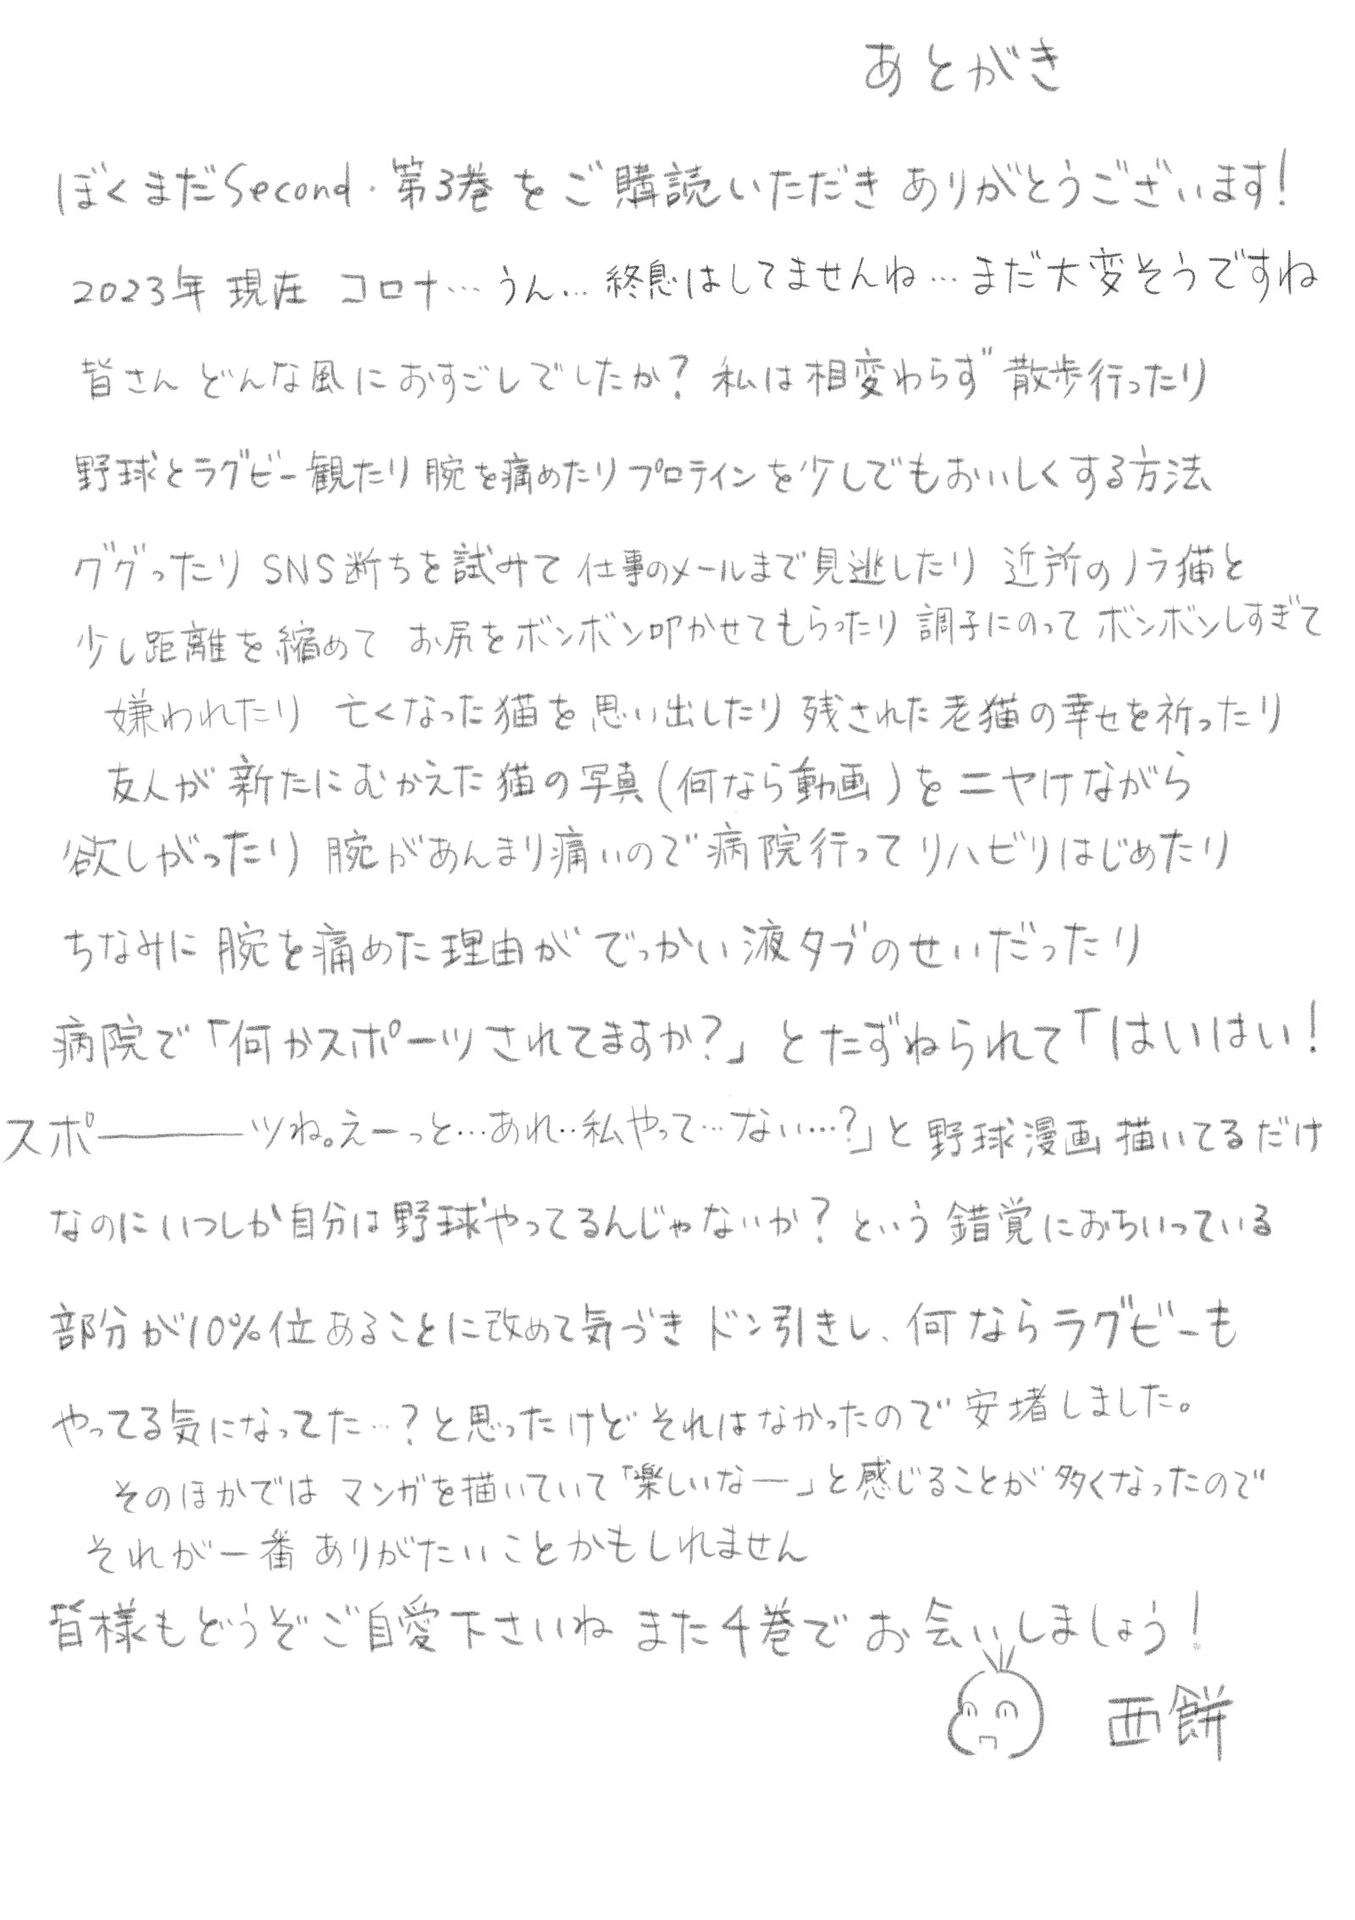 あとがき
ぼくまだSecond・第3巻をご購読いただきありがとうございます!
2023年現在 コロナ…うん…終息はしてませんね…まだ大変そうですね
皆さん どんな風におすごしでしたか? 私は相変わらず 散歩行ったり
野球とラグビー観たり 腕を痛めたり プロテインを少しでもおいしくする方法
ググったり SNS断ちを試みて 仕事のメールまで見逃したり 近所のノラ猫と
少し距離を縮めて お尻をボンボン叩かせてもらったり 調子にのって ボンボンしすぎて
嫌われたり 亡くなった猫を思い出したり 残された老猫の幸せを祈ったり
友人が新たにむかえた猫の写真(何なら動画)をニヤけながら
欲しがったり 腕があんまり痛いので病院行ってリハビリはじめたり
ちなみに 腕を痛めた理由が でっかい液タブのせいだったり
病院で「何かスポーツされてますか?」とたずねられて「はいはい!
スポ―――ツね。えーっと…あれ‥私やって…ない…?」と野球漫画描いてるだけ
なのにいつしか自分は野球やってるんじゃないか?という錯覚におちいっている
部分が10%位あることに改めて気づきドン引きし、何ならラグビーも
やってる気になってた…?と思ったけど それはなかったので 安堵しました。
そのほかでは マンガを描いていて「楽しいなー」と感じることが多くなったので
それが一番 ありがたいことかもしれません
皆様もどうぞご自愛下さいね また4巻でお会いしましょう!
西餅